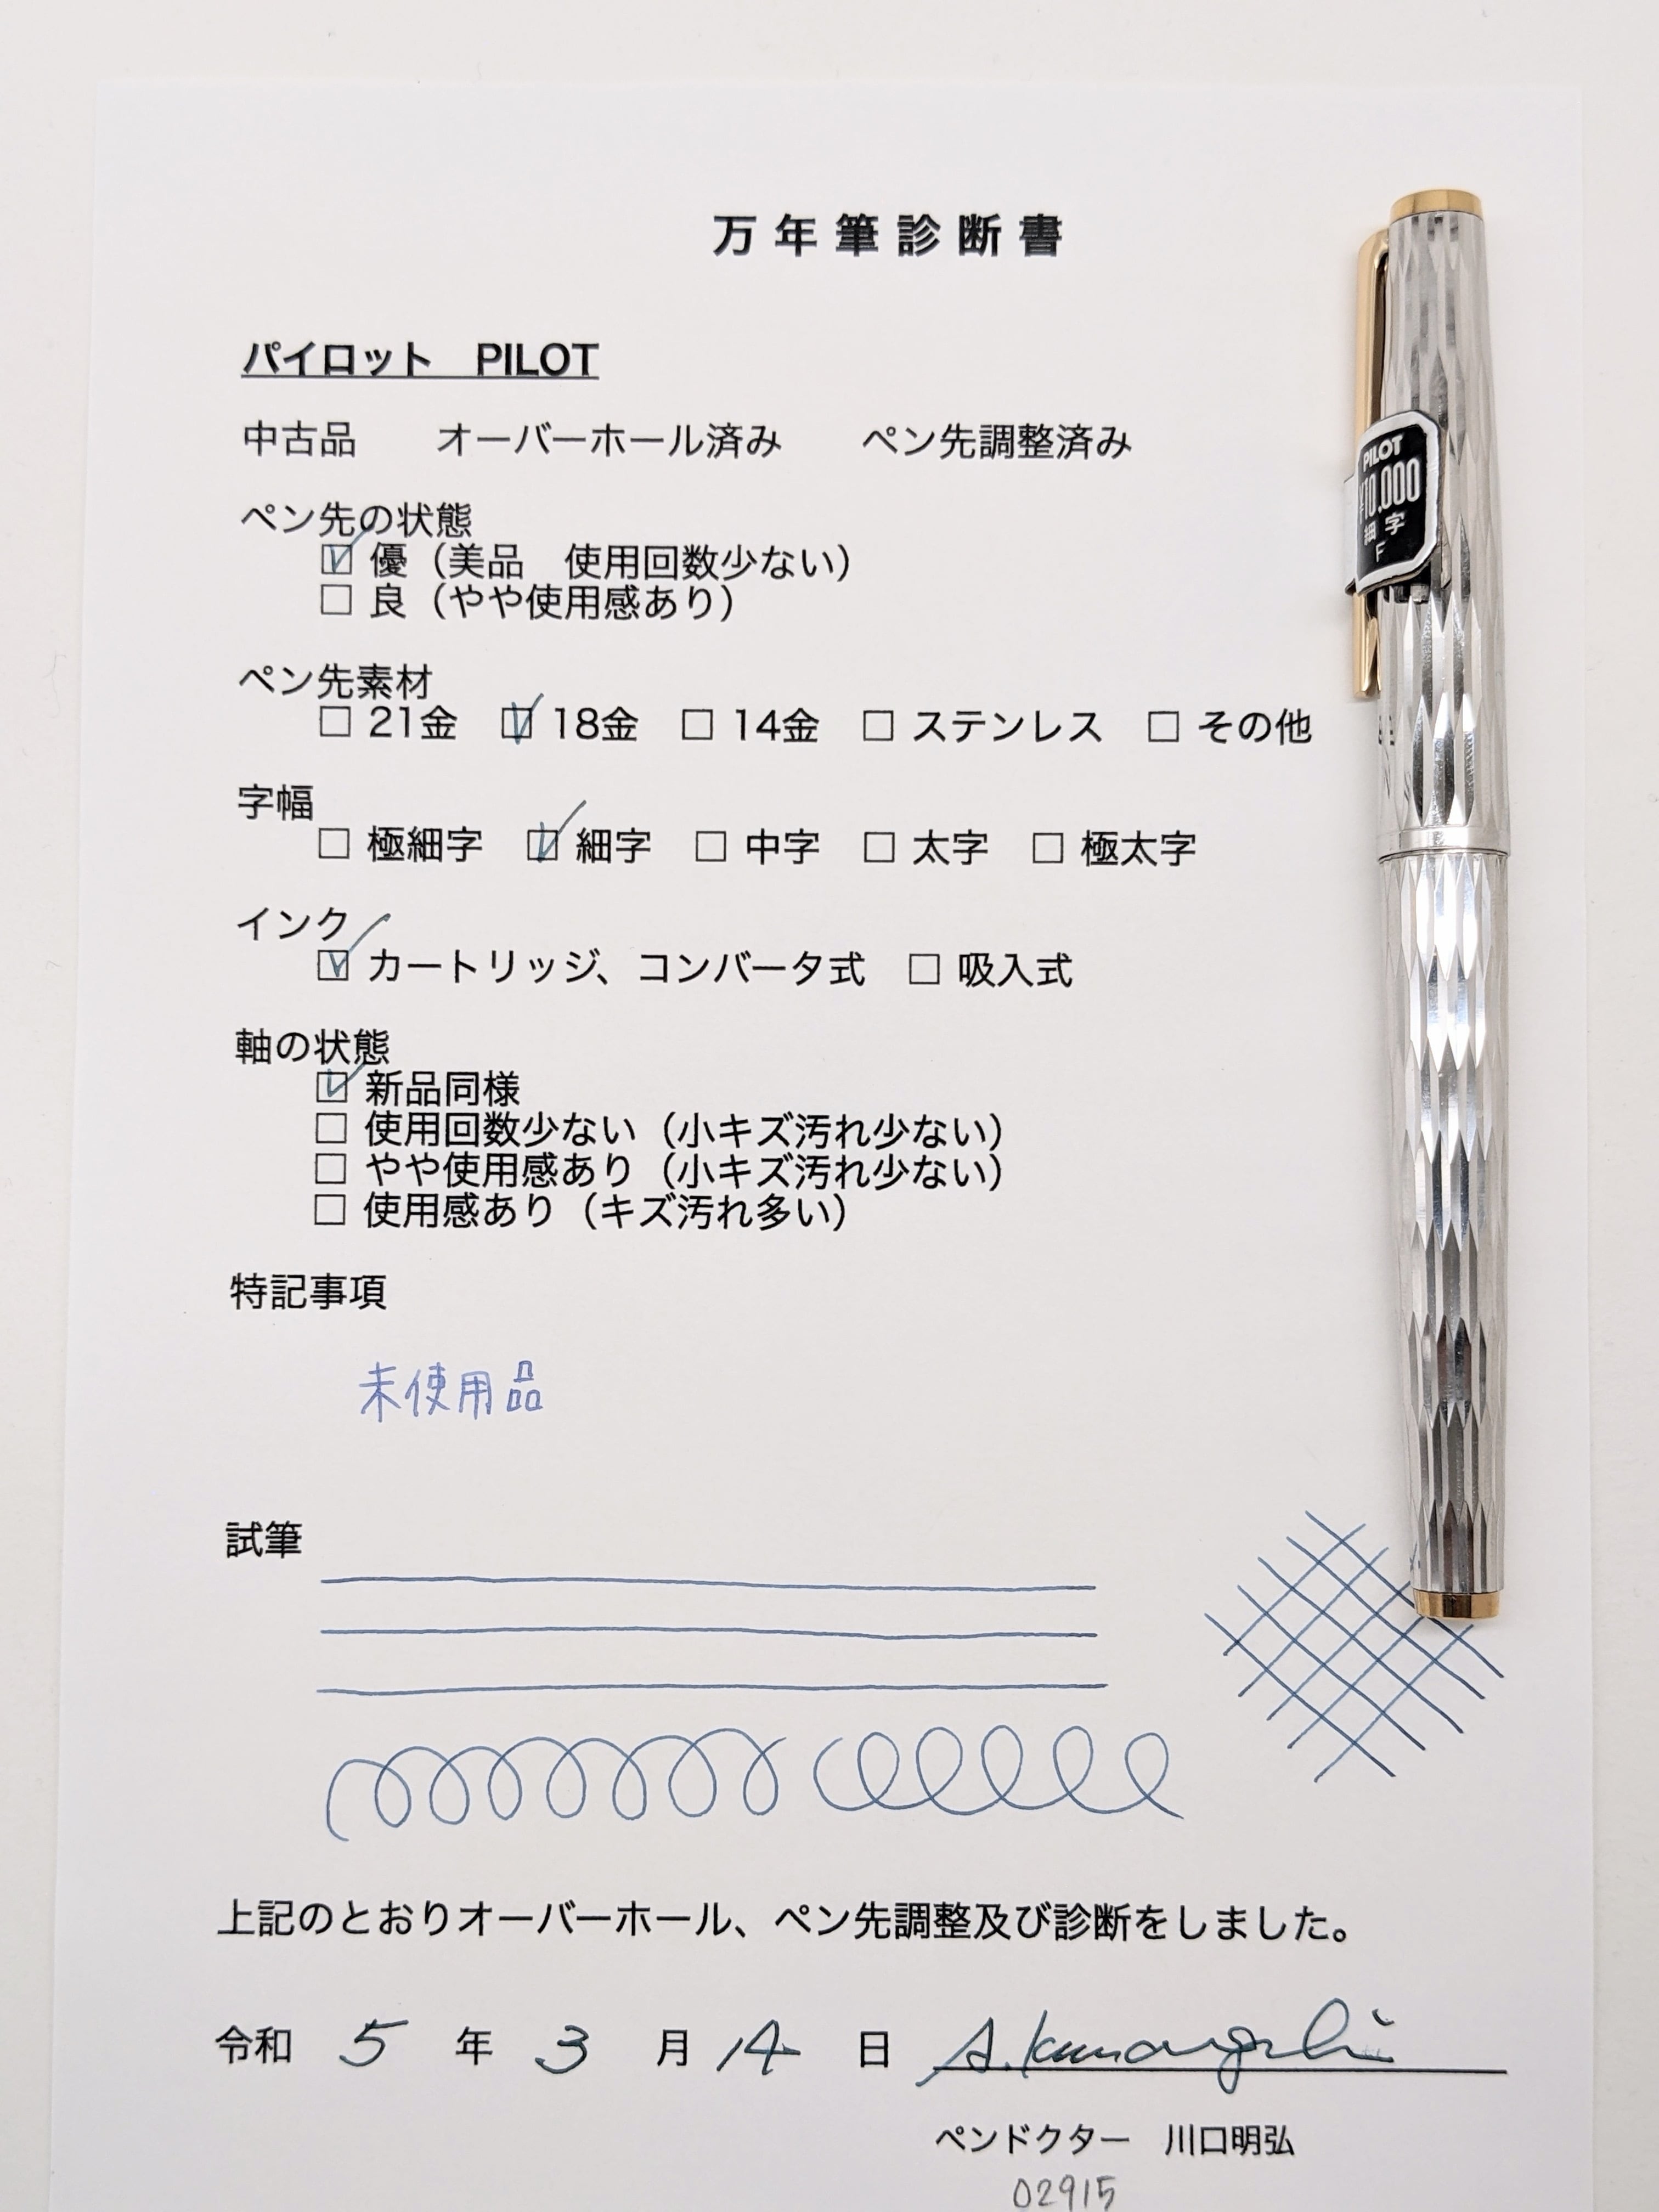 万年筆診断書
パイロット　PILOT
中古品　　オーバーホール済み　　ペン先調整済み
ペン先の状態
☑ 優（美品　使用回数少ない）
□ 良（やや使用感あり）
ペン先素材
□ 21金　☑ 18金　□ 14金　□ ステンレス　□ その他
字幅
□ 極細字　☑ 細字　□ 中字　□ 太字　□ 極太字
インク
☑ カートリッジ、コンバータ式　□ 吸入式
軸の状態
☑ 新品同様
□ 使用回数少ない（小キズ汚れ少ない）
□ やや使用感あり（小キズ汚れ少ない）
□ 使用感あり（キズ汚れ多い）
特記事項
未使用品
試筆
上記のとおりオーバーホール、ペン先調整及び診断をしました。
令和　5　年　3　月　14　日　A.Kawaguchi
ペンドクター　川口明弘
02915
PILOT
¥10.000
細字
F